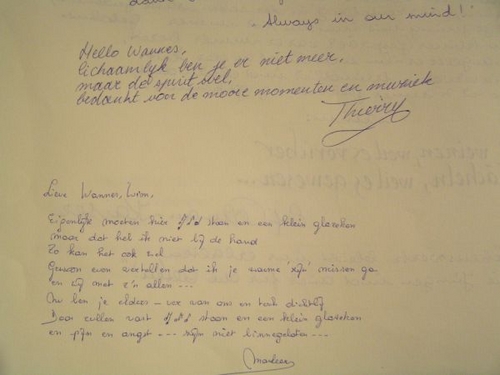 Always in our mind!
Hello Wannes,
lichaamlijk ben je er niet meer,
maar de spirit wel,
bedankt voor de mooie momenten en muziek
Thierry
Lieve Wannes, Wim,
Eigenlijk moeten hier staan en een klein glaseken
maar dat heb ik niet bij de hand
Zo kan het ook wel
Gewoon even vertellen dat ik je warme zijn missen ga
en wij met z'n allen ...
Nu ben je elders - ver van ons en toch dichtbij
Daar zullen vast staan en een klein glaseken
en pijn en angst --- zijn niet binnengelaten ---
Marleen